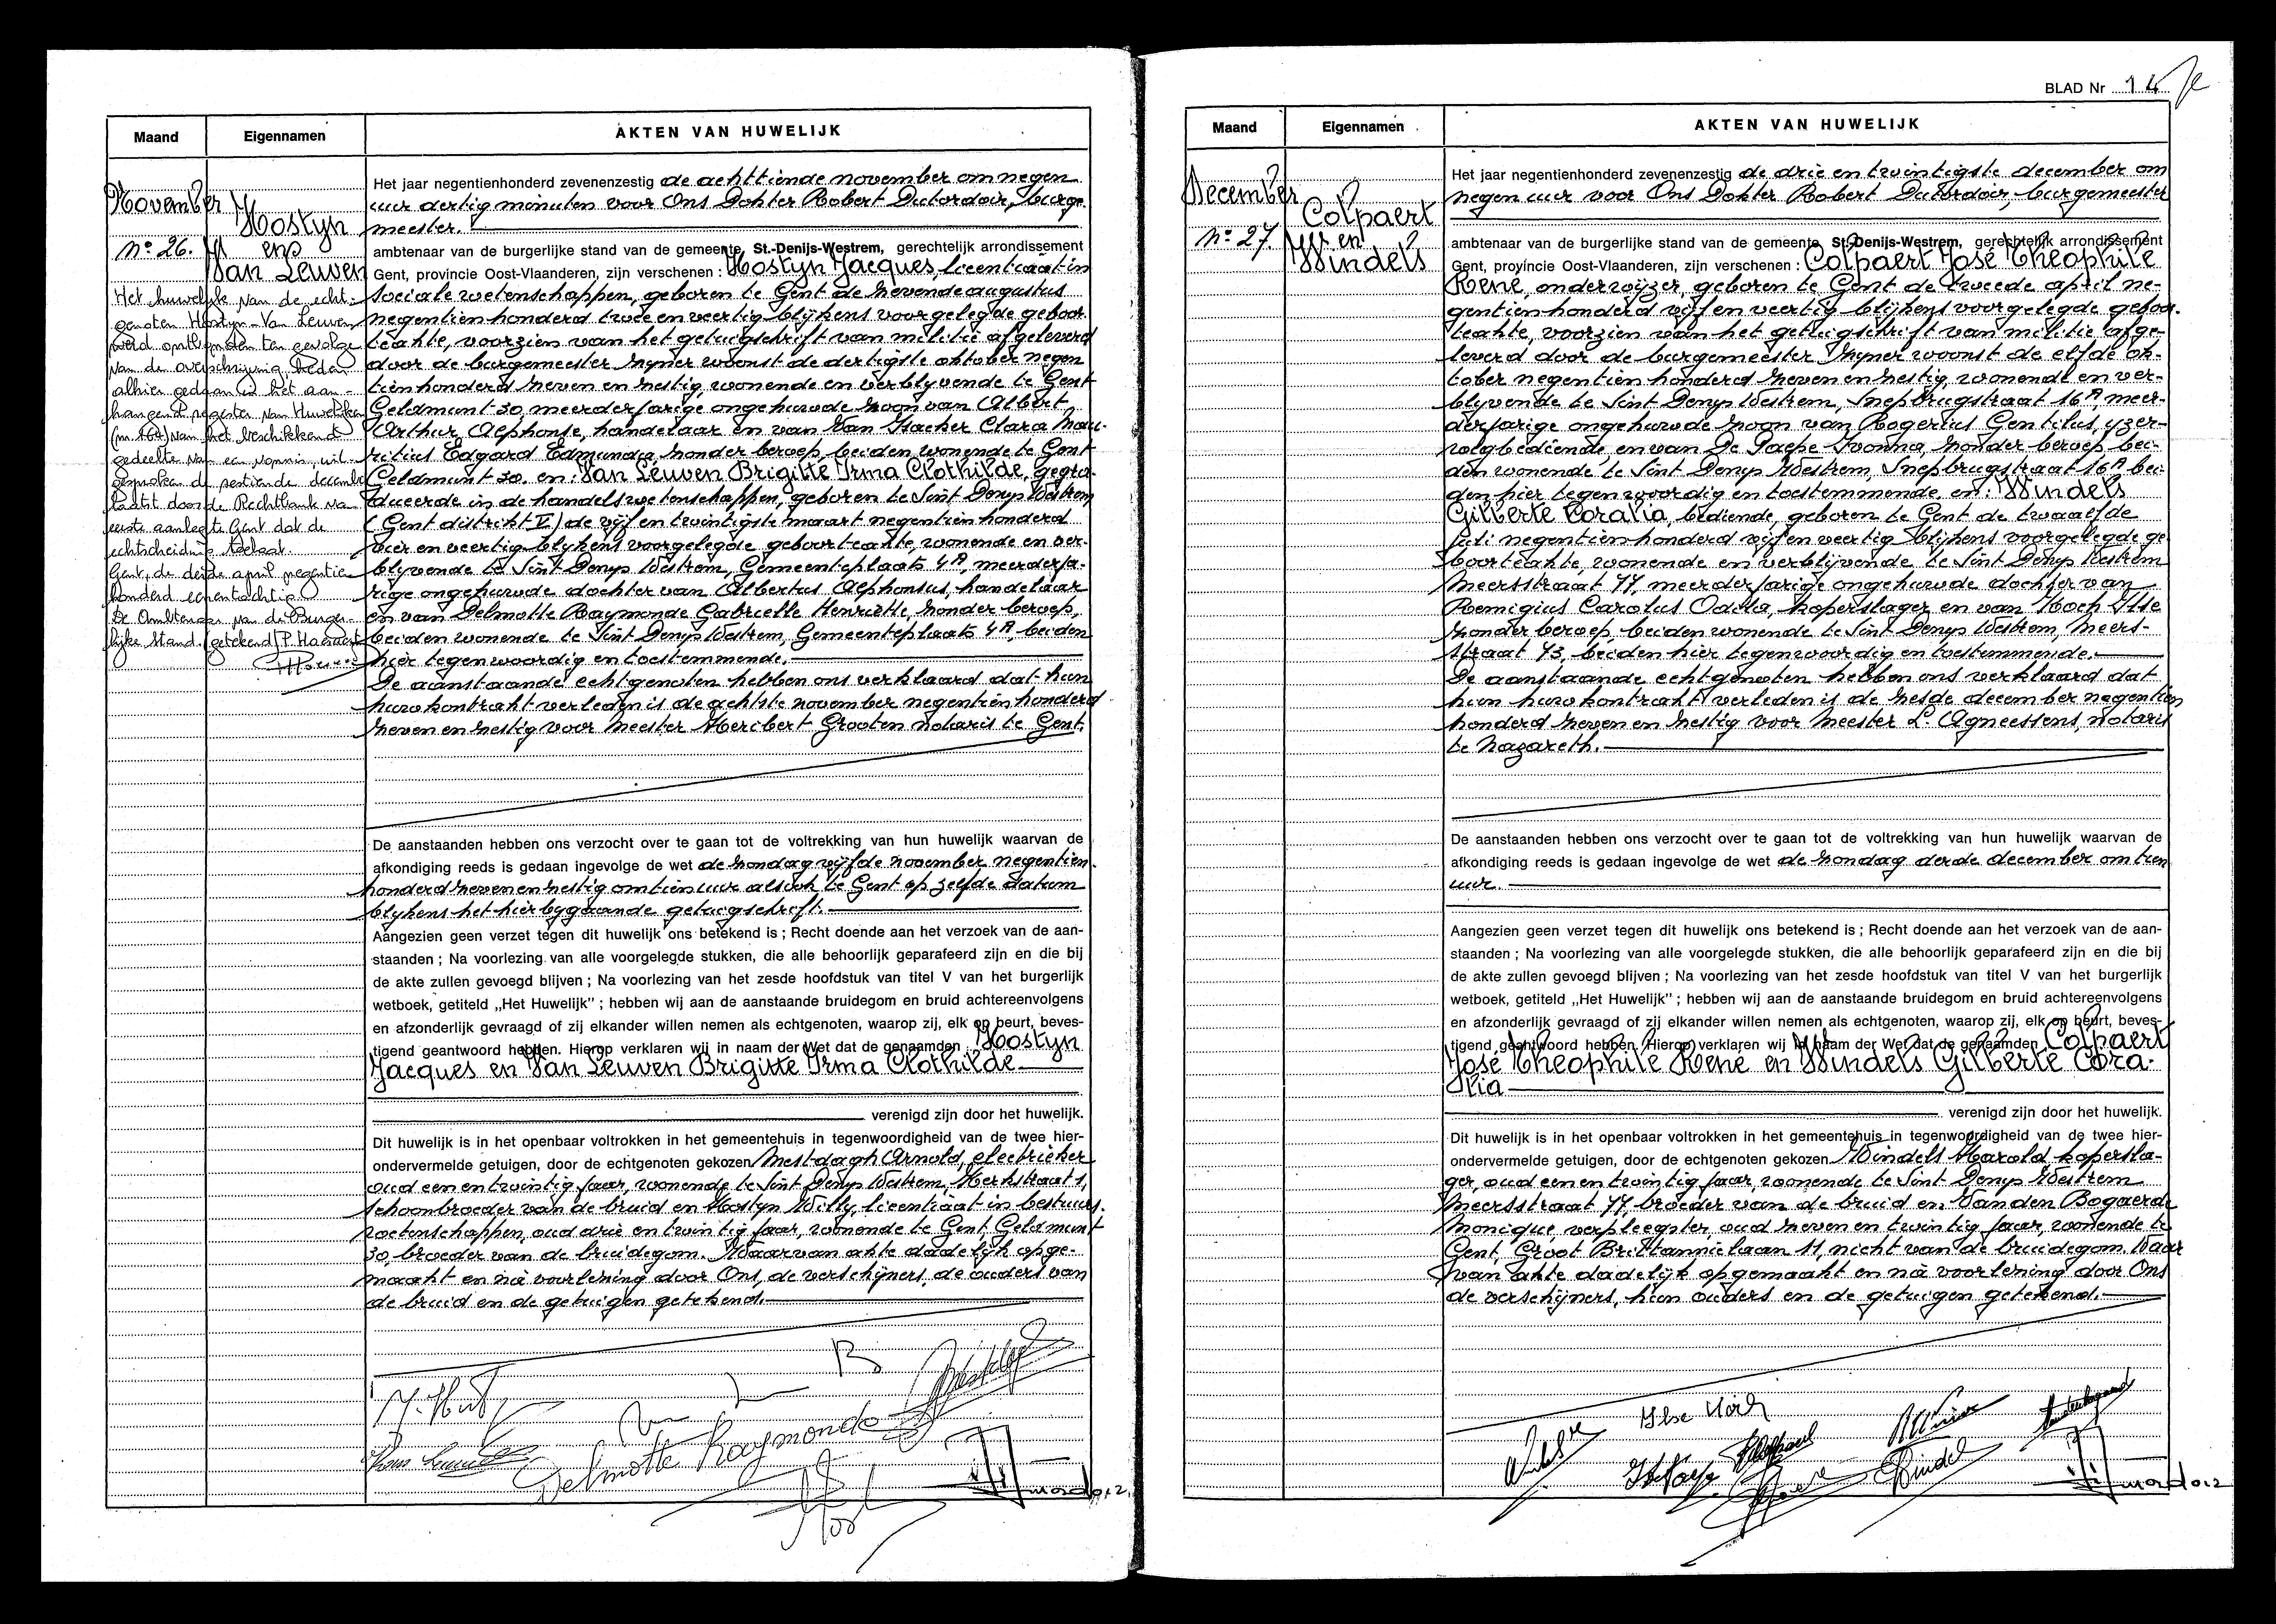 Maand
Eigennamen
AKTEN VAN HUWELIJK
November
Nº 26.
Hostyn
en
Van Leuven
Het huwelijk van de echt-
genoten Hostyn-Van Leuven
werd ontbonden ten gevolge
van de overschrijving heden
alhier gedaan in het aan-
hangend register van Huwelijken
(nr 164) van het beschikkend
gedeelte van een vonnis, uit-
gesproken de zestiende december
laatst door de Rechtbank van
eerste aanleg te Gent dat de
echtscheiding toelaat.
Gent, de derde april negentien
honderd eenentachtig
De Ambtenaar van de Burger-
lijke Stand. (getekend) P. Hanaert
Het jaar negentienhonderd zevenenzestig de achttiende november om negen
uur dertig minuten voor Ons Dokter Robert Dutordoir, burge-
meester.
ambtenaar van de burgerlijke stand van de gemeente, St.-Denijs-Westrem, gerechtelijk arrondissement
Gent, provincie Oost-Vlaanderen, zijn verschenen : Hostyn Jacques, licentiaat in
sociale wetenschappen, geboren te Gent de zevende augustus
negentien honderd twee en veertig blijkens voorgelegde geboor
teakte, voorzien van het getuigschrift van militie afgeleverd
door de burgemeester zijner woonst de dertigste oktober negen
tien honderd zeven en zestig, wonende en verblyvende te Gent
Geldmunt 30, meerderjarige ongehuwde zoon van Albert
Arthur Alphonse, handelaar en van Van Hacker Clara Mau-
ritius Edgard Edmunda zonder beroep, beiden wonende te Gent
Geldmunt 30. en: Van Leuven Brigitte Irma Clothilde, gegra-
dueerde in de handelswetenschappen, geboren te Sint Denys Westrem
(Gent distrikt V) de vijf en twintigste maart negentien honderd
vier en veertig blijkens voorgelegde geboorteakte, wonende en ver-
blijvende te Sint Denys Westrem, Gemeenteplaats 4A, meerderja-
rige ongehuwde dochter van Albertus Alphonsus, handelaar
en van Delmotte Raymonde Gabrielle Henriette, zonder beroep,
beiden wonende te Sint Denys Westrem, Gemeenteplaats 4A, beiden
hier tegenwoordig en toestemmende.
De aanstaande echtgenoten hebben ons verklaard dat hun
huwkontrakt verleden is de achtste november negentien honderd
zeven en zestig voor meester Heribert Grooten notaris te Gent.
De aanstaanden hebben ons verzocht over te gaan tot de voltrekking van hun huwelijk waarvan de
afkondiging reeds is gedaan ingevolge de wet de zondag vijfde november negentien
honderd zeven en zestig om tien uur alsook te Gent op zelfde datum
blykens het hierbygaande getuigschrift.
Aangezien geen verzet tegen dit huwelijk ons betekend is ; Recht doende aan het verzoek van de aan-
staanden ; Na voorlezing van alle voorgelegde stukken, die alle behoorlijk geparafeerd zijn en die bij
de akte zullen gevoegd blijven ; Na voorlezing van het zesde hoofdstuk van titel V van het burgerlijk
wetboek, getiteld „Het Huwelijk" ; hebben wij aan de aanstaande bruidegom en bruid achtereenvolgens
en afzonderlijk gevraagd of zij elkander willen nemen als echtgenoten, waarop zij, elk op beurt, beves-
tigend geantwoord hebben. Hierop verklaren wij in naam der Wet dat de genaamden Hostyn
Jacques en Van Leuven Brigitte Irma Clothilde
verenigd zijn door het huwelijk.
Dit huwelijk is in het openbaar voltrokken in het gemeentehuis in tegenwoordigheid van de twee hier-
ondervermelde getuigen, door de echtgenoten gekozen Mestdagh Arnold, electrieker
oud een en twintig jaar, wonende te Sint Denys Westrem, Kerkstraat 1,
schoonbroeder van de bruid en Hostyn Willy, licentiaat in bestuurs-
wetenschappen, oud drie en twintig jaar, wonende te Gent, Geldmunt
30, broeder van de bruidegom. Waarvan akte dadelijk opge-
maakt en nà voorlezing door Ons, de verschijners, de ouders van
de bruid en de getuigen getekend.
Delmotte Raymonde
BLAD Nr 14
Maand
Eigennamen
AKTEN VAN HUWELIJK
December
Nº 27.
Colpaert
en
Windels
Het jaar negentienhonderd zevenenzestig de drie en twintigste december om
negen uur voor Ons Dokter Robert Dutordoir, burgemeester
ambtenaar van de burgerlijke stand van de gemeente, St.-Denijs-Westrem, gerechtelijk arrondissement
Gent, provincie Oost-Vlaanderen, zijn verschenen : Colpaert José Théophile
René, onderwijzer, geboren te Gent de tweede april ne-
gentien honderd vijf en veertig blijkens voorgelegde geboor-
teakte, voorzien van het getuigschrift van militie afge-
leverd door de burgemeester zijner woonst de elfde ok-
tober negentien honderd zeven en zestig, wonende en ver-
blijvende te Sint Denys Westrem, Snepbrugstraat 16A, meer-
derjarige ongehuwde zoon van Rogerius Gentilus, yzer-
wegbediende en van De Paepe Ivonna, zonder beroep bei-
den wonende te Sint Denys Westrem, Snepbrugstraat 16A bei-
den hier tegenwoordig en toestemmende en: Windels
Gilberte Coralia, bediende, geboren te Gent de twaalfde
juli negentien honderd vijf en veertig blijkens voorgelegde ge
boorteakte, wonende en verblijvende te Sint Denys Westrem
Meersstraat 77, meerderjarige ongehuwde dochter van
Remigius Carolus Odilla, koperslager en van Koch Ilse
zonder beroep beiden wonende te Sint Denys Westrem, Meers-
straat 73, beiden hier tegenwoordig en toestemmende.
De aanstaande echtgenoten hebben ons verklaard dat
hun huwkontrakt verleden is de zesde december negentien
honderd zeven en zestig voor Meester L. Agneessens, notaris
te Nazareth.
De aanstaanden hebben ons verzocht over te gaan tot de voltrekking van hun huwelijk waarvan de
afkondiging reeds is gedaan ingevolge de wet de zondag derde december om tien
uur.
Aangezien geen verzet tegen dit huwelijk ons betekend is ; Recht doende aan het verzoek van de aan-
staanden ; Na voorlezing van alle voorgelegde stukken, die alle behoorlijk geparafeerd zijn en die bij
de akte zullen gevoegd blijven ; Na voorlezing van het zesde hoofdstuk van titel V van het burgerlijk
wetboek, getiteld „Het Huwelijk" ; hebben wij aan de aanstaande bruidegom en bruid achtereenvolgens
en afzonderlijk gevraagd of zij elkander willen nemen als echtgenoten, waarop zij, elk op beurt, beves-
tigend geantwoord hebben. Hierop verklaren wij in naam der Wet dat de genaamden Colpaert
José Théophile René en Windels Gilberte Cora-
lia
verenigd zijn door het huwelijk.
Dit huwelijk is in het openbaar voltrokken in het gemeentehuis in tegenwoordigheid van de twee hier-
ondervermelde getuigen, door de echtgenoten gekozen Windels Harold kopersla-
ger, oud een en twintig jaar, wonende te Sint Denys Westrem
Meersstraat 77, broeder van de bruid en Vanden Bogaerde
Monique, verpleegster, oud zeven en twintig jaar, wonende te
Gent, Groot Brittanniëlaan 11, nicht van de bruidegom. Waar
van akte dadelijk opgemaakt en nà voorlezing door Ons
de verschijners, hun ouders en de getuigen getekend.
Ilse Koch